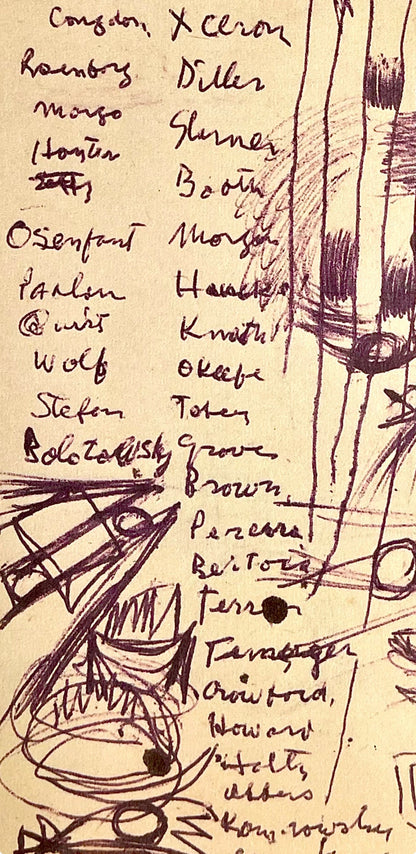 Congdon, Xceron
Rosenborg Diller
Morgo Sterner
Hayter Booth
Osenfant Morgan
Parlen
Quirt Knath
Wolf Okeefe
Stefan Tobey
Bolotowsky Groves
Brown,
Pereira
Bertoia
Terron
Crawford,
Howard
Holty
Albers